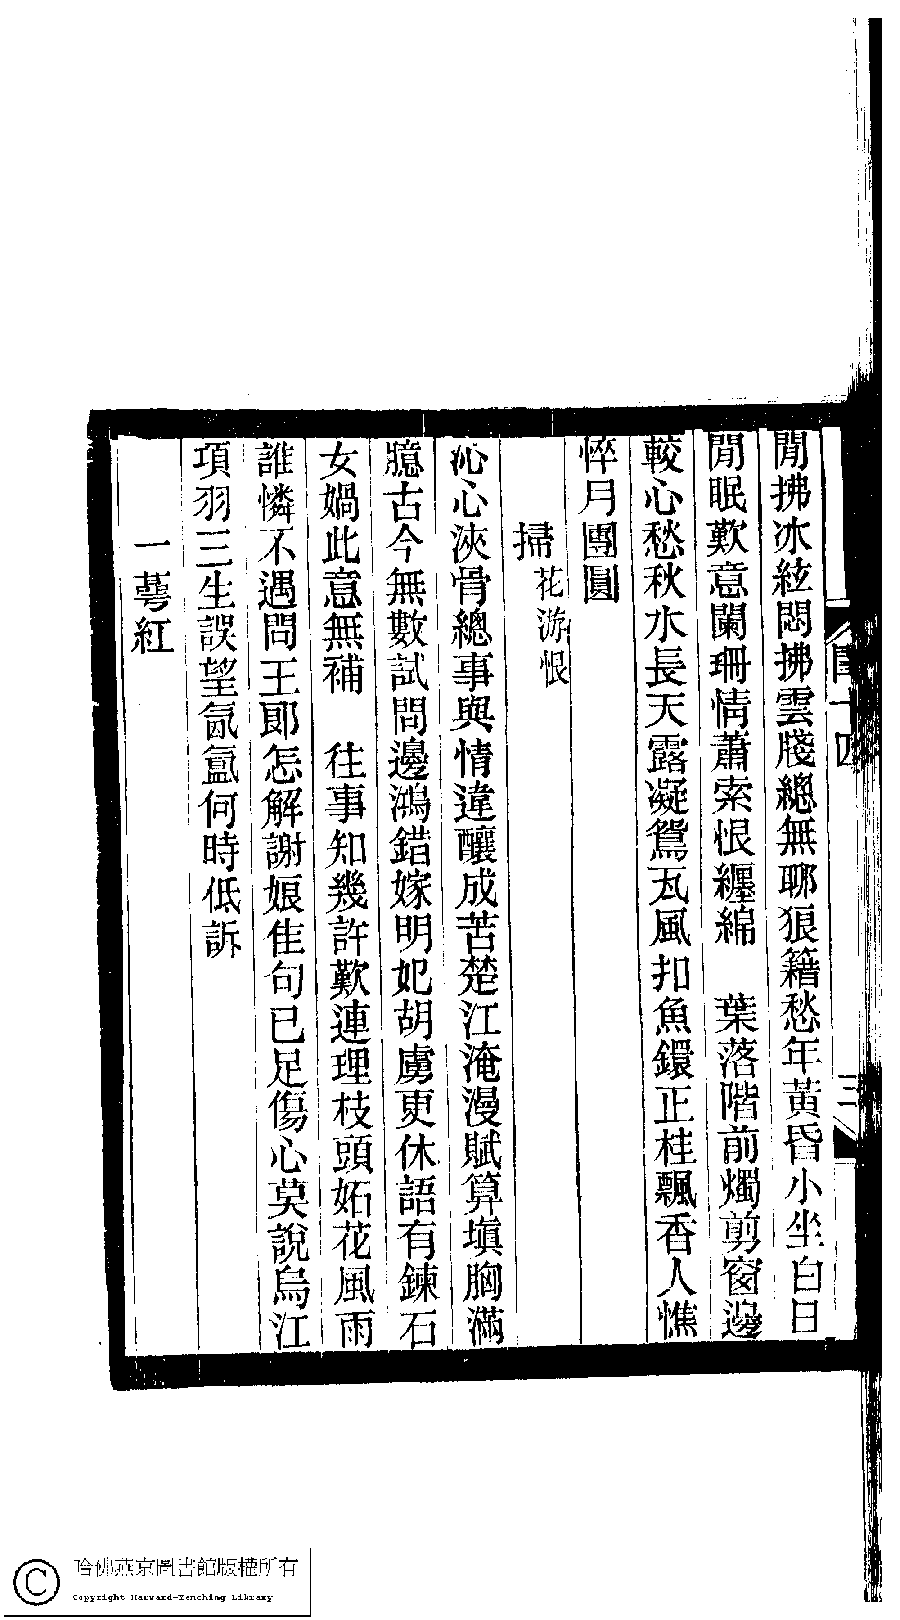 閒拂冰絃悶拂雲牋總無聊狼籍愁年黃昏小坐白日
閒眠歎意闌珊情蕭索恨纏綿　葉落階前燭剪窗邊
較心愁秋水長天露凝鴛瓦風扣魚鐶正桂飄香人憔
悴月團圓
掃花游恨
沁心浹骨總事與情違釀成苦楚江淹漫賦算塡胸滿
臆古今無數試問邊鴻錯嫁明妃胡虜更休語有鍊石
女媧此意無補　往事知幾許歎連理枝頭妬花風雨
誰憐不遇問王郞怎解謝娘佳句已足傷心莫說烏江
項羽三生誤望氤氳何時低訴
一萼紅
哈佛燕京圖書館版權所有
Copyright Harvard-Yenching Library